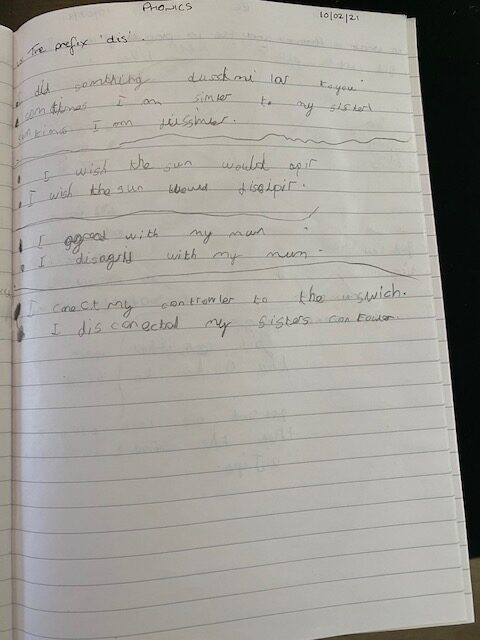 PHONICS 10/02/21
The prefix 'dis'.
I did something dusckmi lar to you
somtimes I am simler to my sister
somtimes I am dissimler.
I wish the sun would apir
I wish the sun would disapir.
I agged with my mum
I disagrd with my mum.
I conect my controwler to the swich.
I dis conected my sisters contower.